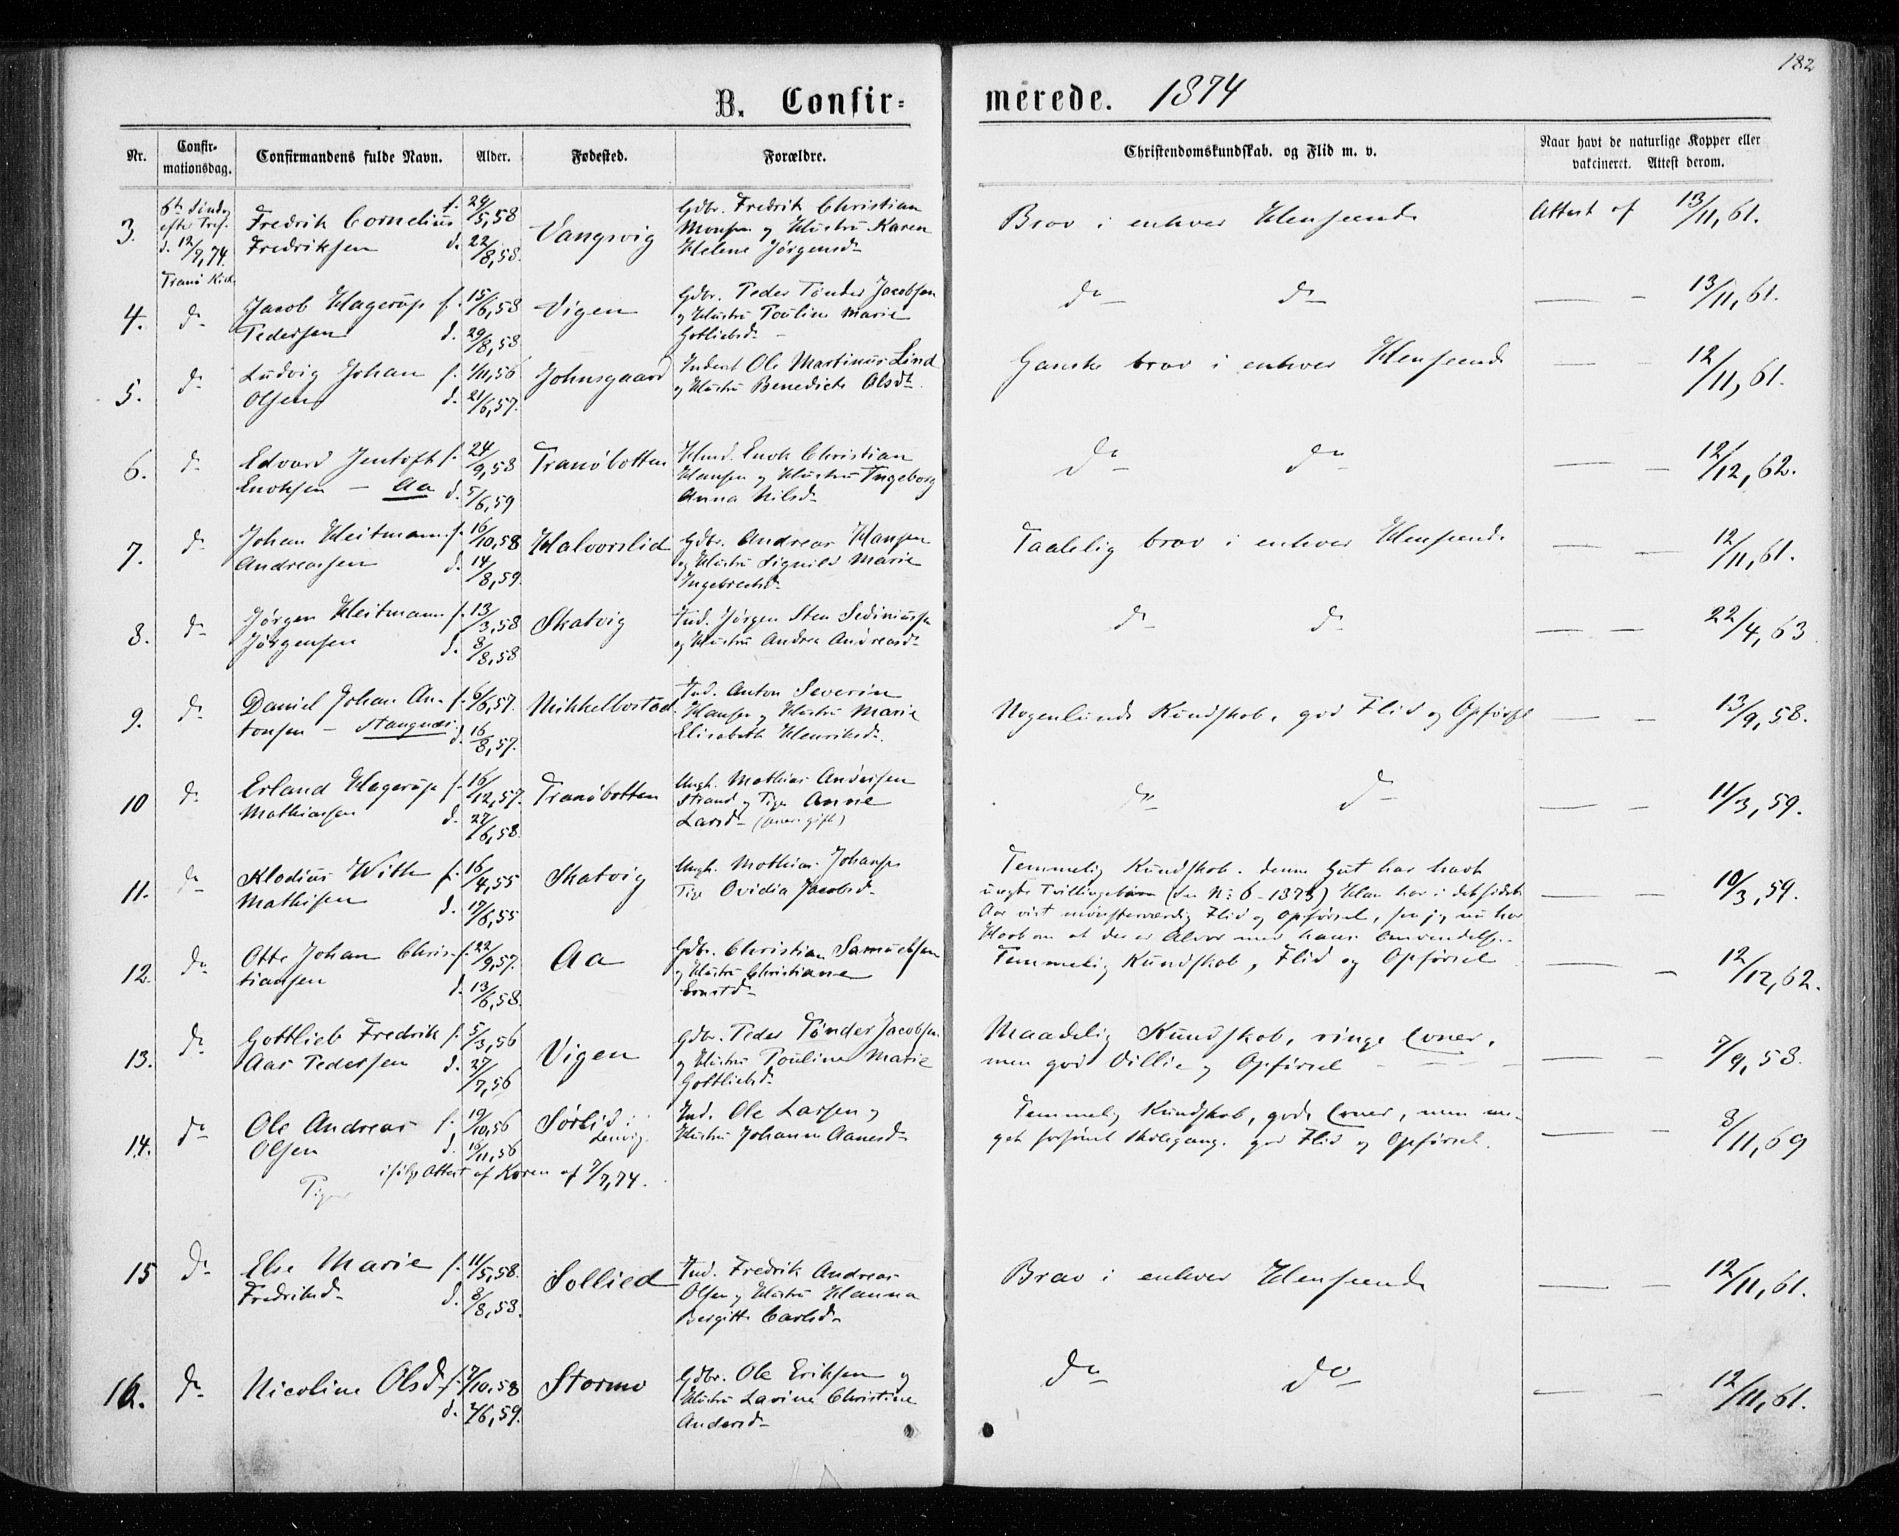 182
B. Confir=
merede. 1874
Nr.
Confir-
mationsdag.
Confirmandens fulde Navn.
Alder.
Fødested.
Forældre.
Christendomskundskab. og Flid m. v.
Naar havt de naturlige Kopper eller
vakcineret. Attest derom.
3.
6te Sønd.
efter Tref.
d. 12/7,74.
Tranø Kirk.
Fredrik Cornelius f. 29/5,58
Fredriksen d. 22/8,58.
Vangsvig
Gdbr. Fredrik Christian
Monsen og Hustru Karen
Helene Jørgensd.
Brav i enhver Henseende
Attest af 13/11,61.
4. do
Jacob Hagerup f. 15/6,58
Pedersen d. 29/8,58
Vigen
Gdbr. Peder Tønder Jacobsen
og Hustru Pouline Marie
Gotliebsd.
do do
— — 13/11,61.
5. do
Ludvig Johan f. 1/11,56
Olsen d. 21/6,57.
Johnsgaard
Inderst Ole Martinus Lind
og Hustru Benedicte Olsdt.
Ganske brav i enhver Henseende
— — 12/11,61.
6. do
Edvard Jentoft f. 24/9,58
Enoksen — Aa d. 5/6,59
Tranøbotten
Hmd. Enok Christian
Hansen og Hustru Ingeborg
Anna Nilsd.
do do
— — 12/12,62.
7. do
Johan Heitmann f. 16/10,58
Andreassen d. 14/8,59.
Halvorslid
Gdbr. Andreas Hansen
og Hustru Signild Marie
Ingebrectsd.
Taalelig brav i enhver Henseende
— — 12/11,61.
8. do
Jørgen Heitmann f. 13/3,58
Jørgensen d. 8/8,58
Skatvig
Ind. Jørgen Sten Sediniussen
og Hustru Andrea Andreasd.
do do
— — 22/4,63
9. do
Daniel Johan An- f. 6/6,57.
tonsen — Stangnæs d. 16/8,57.
Mikkelbostad
Ind. Anton Severin
Hansen og Hustru Marie
Elisabeth Henriksd.
Nogenlunde Kundskab, god Flid og Opførsel
— — 13/9,58.
10 do
Erland Hagerup f. 16/12,57.
Mathiassen d. 27/6,58.
Tranøbotten
Ungk. Mathias Andersen
Strand og Pige Anne
Larsd.
do do
— — 11/3,59.
11. do
Klodius With f. 16/4,55
Mathisen d. 17/6,55
Skatvig
Ungk. Mathias Johansen
Pige Ovidia Jacobsd.
Temmelig Kundskab. denne Gut har havt
uægte Tvillingebørn (See No 6 - 1873) Han har i det sidste
Aar vist mønsterværdig Flid og Opførsel, saa jeg nu har
Haab om at der er Alvor med hans Omvendelse.
— — 10/3,59.
12. do
Otto Johan Chris- f. 22/9,57.
tiansen d. 13/6,58.
Aa
Gdbr. Christian Samuelsen
og Hustru Christiane
Ernstd.
Temmelig Kundskab, Flid og Opførsel
— — 12/12,62.
13. do
Gottlieb Fredrik f. 5/3,56
Aas Pedersen d. 27/7,56
Vigen
Gdbr. Peder Tønder Jacobsen
og Hustru Pouline Marie
Gottliebsd.
Maadelig Kundskab, ringe Evner,
men god Villie og Opførsel
— — 7/9,58.
14. do
Ole Andreas f. 19/10,56
Olsen d. 16/11,56
Sørlid i
Lenvig.
ifølge Attest af Koren af 7/7,74.
Ind. Ole Larsen og
Hustru Johanna Aanesd.
Temmelig Kundskab, gode Evner, men me-
get forsømt Skolegang. god Flid og Opførsel.
— — 8/11,69
Piger
15 do
Else Marie f. 11/5,58.
Fredriksd. d. 8/8,58.
Sollied
Ind. Fredrik Andreas
Olsen og Hustru Hanna
Bergitte Carlsd.
Brav i enhver Henseende
— — 12/11,61.
16. do
Nicoline Olsd. f. 7/10,58
d. 2/6,59.
Stormo
Gdbr. Ole Eriksen og
Hustru Lavine Christine
Andersd.
do do
— — 12/11,61.